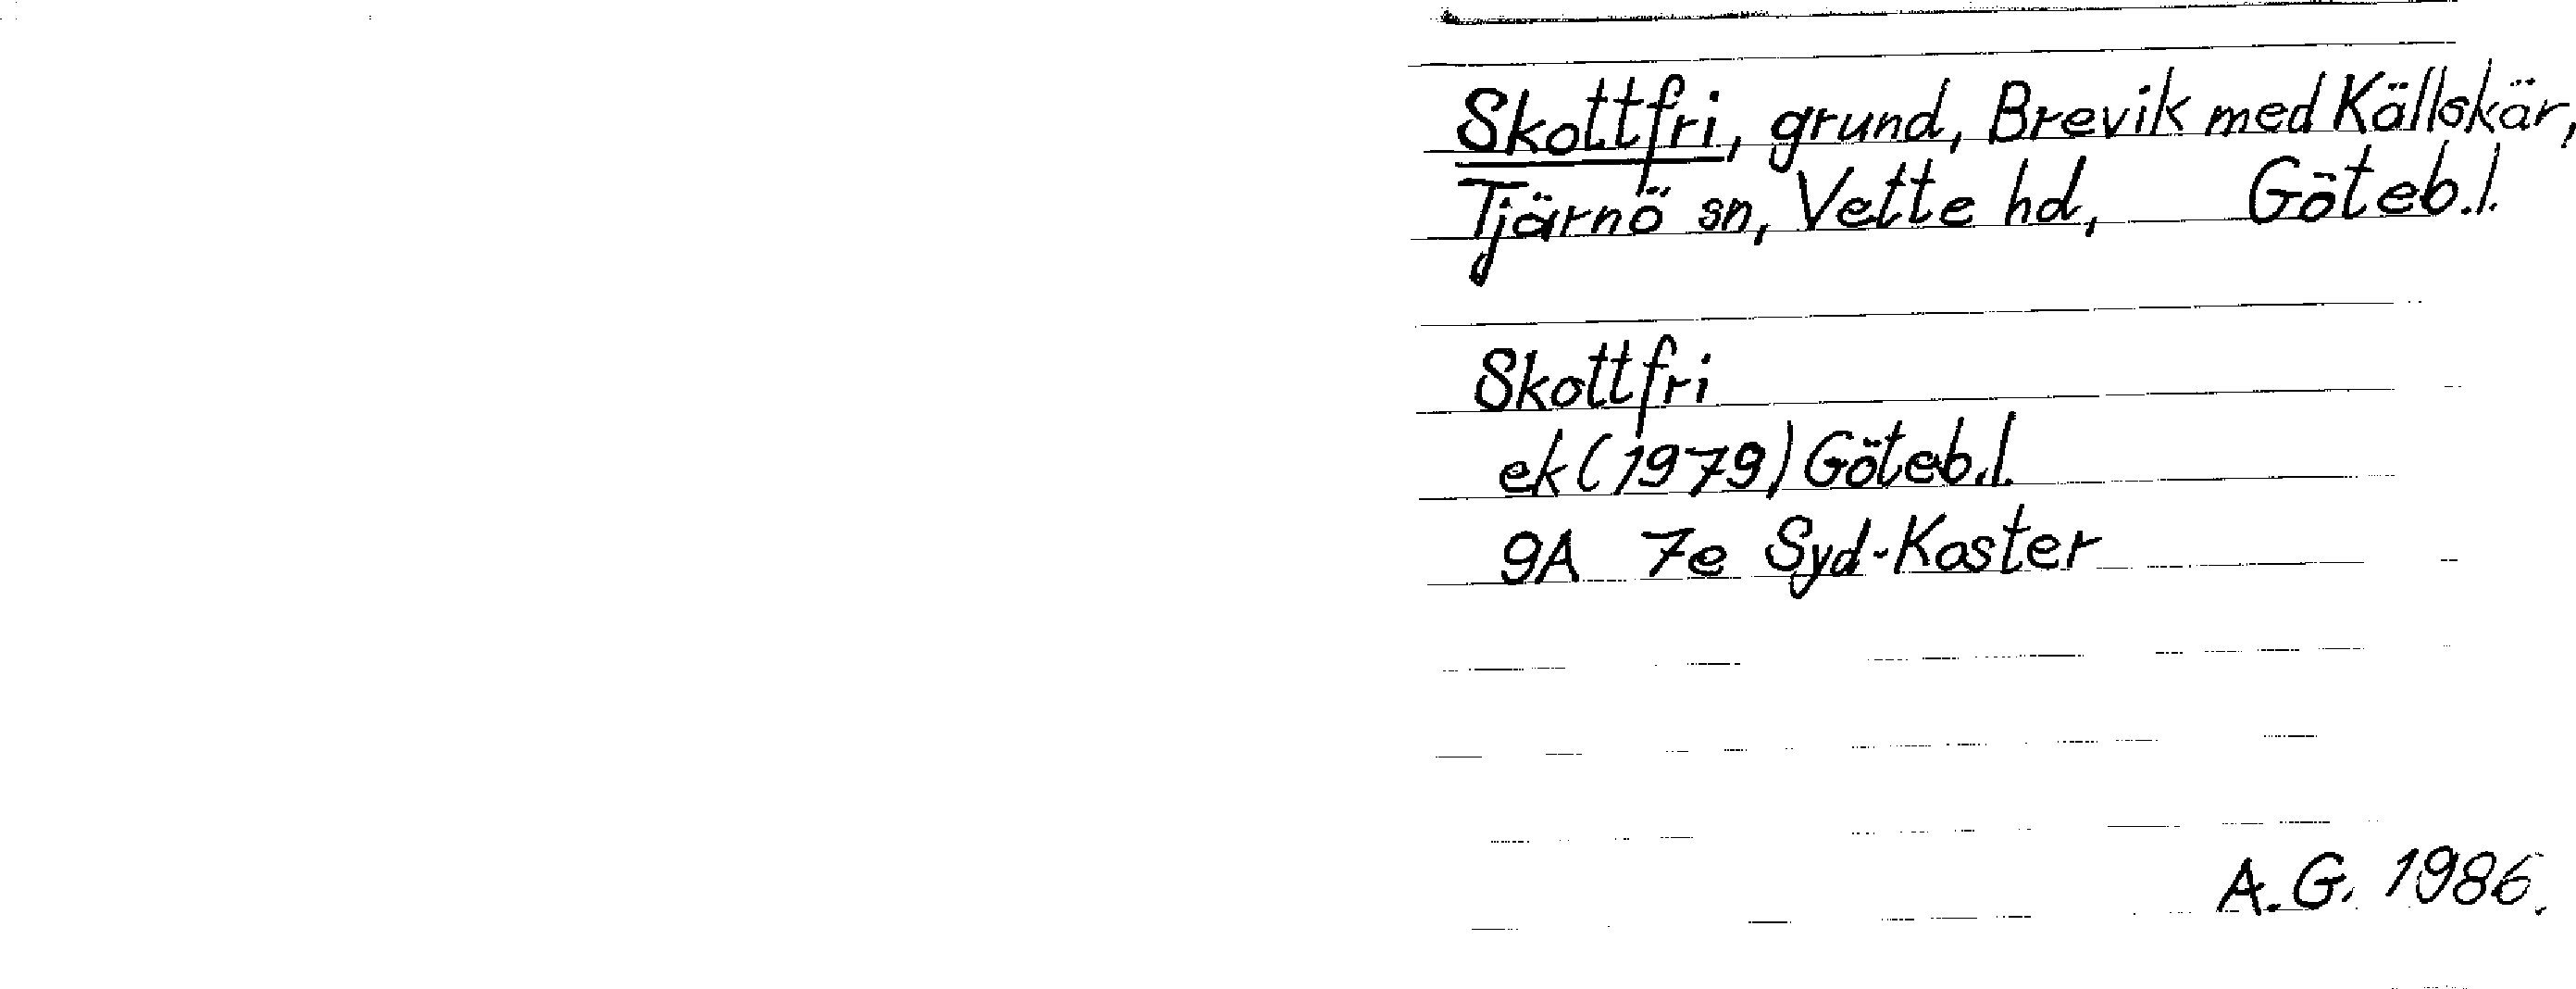 Skottfri, grund, Brevik med Källskär,
Tjärnö sn, Vette hd, Göteb.l.
Skottfri
ek (1979) Göteb.l.
9A 7e Syd-Koster
A.G. 1986.